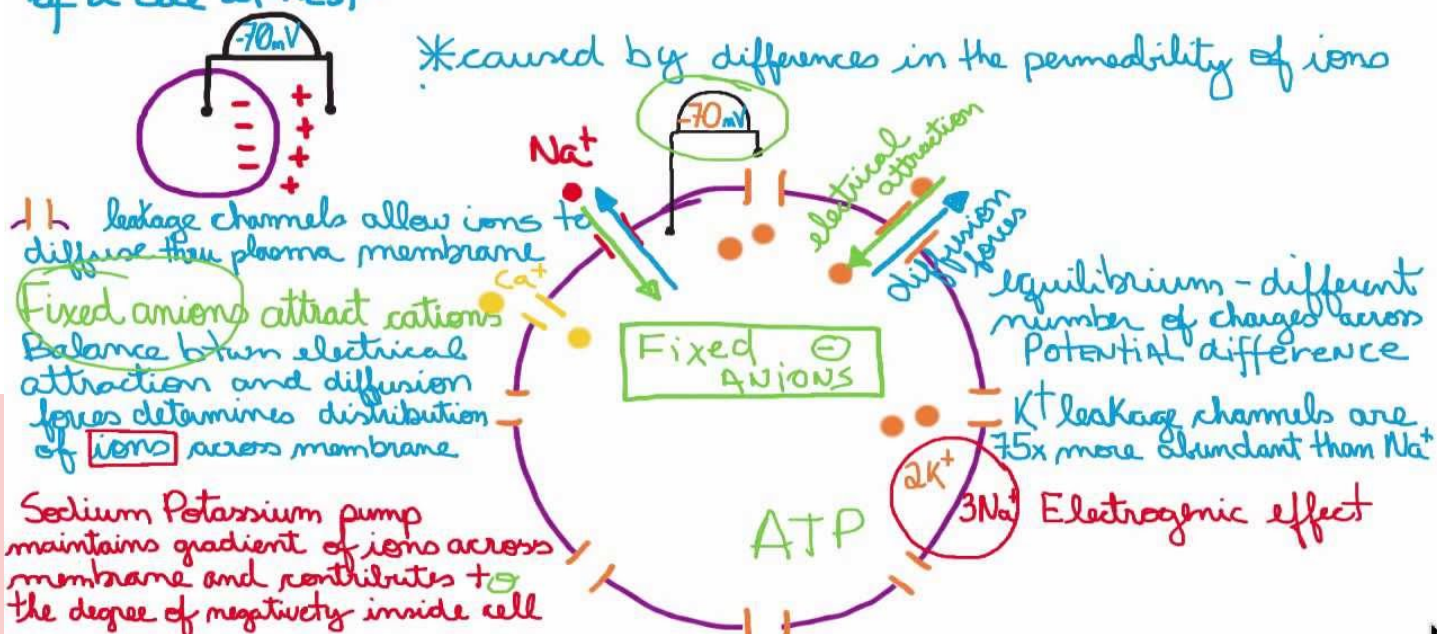 of a cell at rest
-70mV
*caused by differences in the permeability of ions
-70mV
Na⁺
electrical
attraction
diffusion
forces
leakage channels allow ions to
diffuse thru plasma membrane
Ca⁺
Fixed anions attract cations
Balance btwn electrical
attraction and diffusion
forces detamines distribution
of ions across membrane
Fixed ⊖
ANIONS
equilibrium - different
number of charges across
POTENTIAL difference
K⁺ leakage channels are
75x more abundant than Na⁺
2K⁺
3Na⁺ Electrogenic effect
ATP
Sodium Potassium pump
maintains gradient of ions across
membrane and contributes to
the degree of negativety inside cell